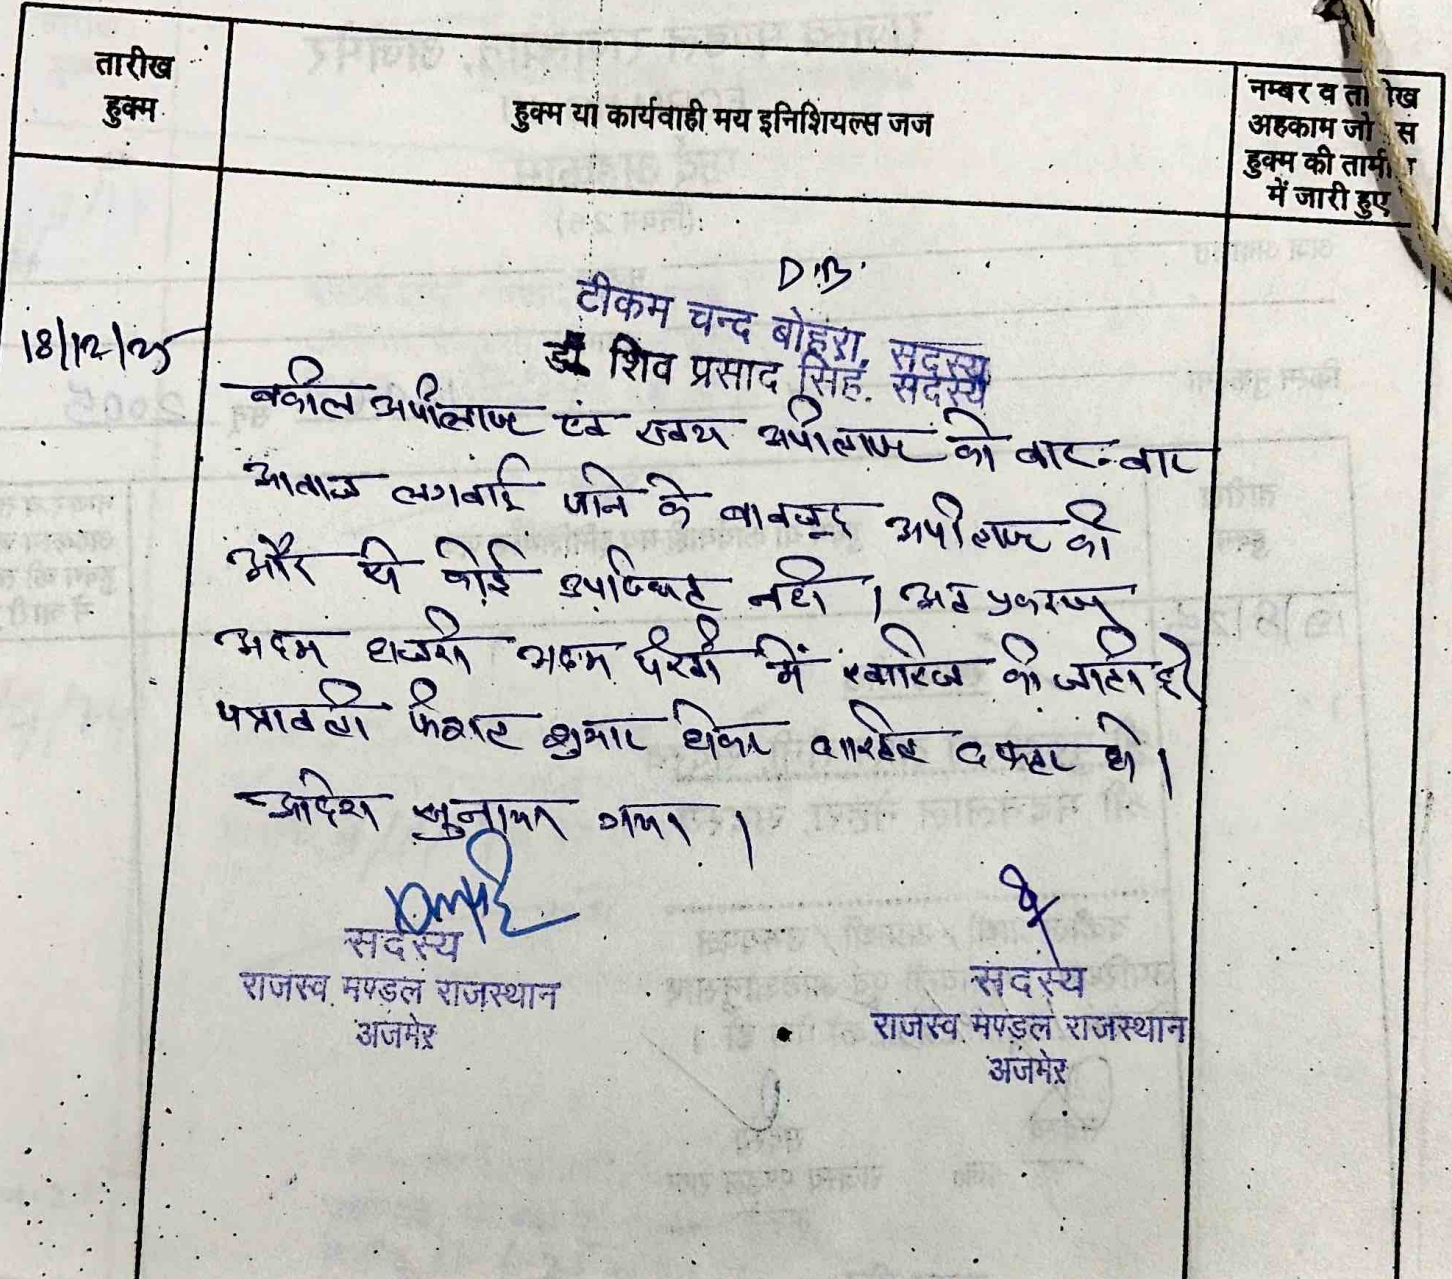 तारीख
हुक्म
हुक्म या कार्यवाही मय इनिशियल्स जज
नम्बर व ता
अहकाम जो
हुक्म की तामी
में जारी हुए
D.B.
टीकम चन्द बोहरा, सदस्य
18/12/25
डॉ शिव प्रसाद सिंह. सदस्य
वकील अपीलाण्ट एवं स्वयं अपीलाण्ट को बार-बार
आवाज लगवाई जाने के बावजूद अपीलाण्ट की
और से कोई उपस्थित नही । अतः प्रकरण
अदम हाजरी अदम पैरवी में खारिज की जाती है।
पत्रावली फैसल शुमार होकर दाखिल दफ्तर हो ।
आदेश सुनाया गया ।
सदस्य
राजस्व मण्डल राजस्थान
अजमेर
सदस्य
राजस्व मण्डल राजस्थान
अजमेर